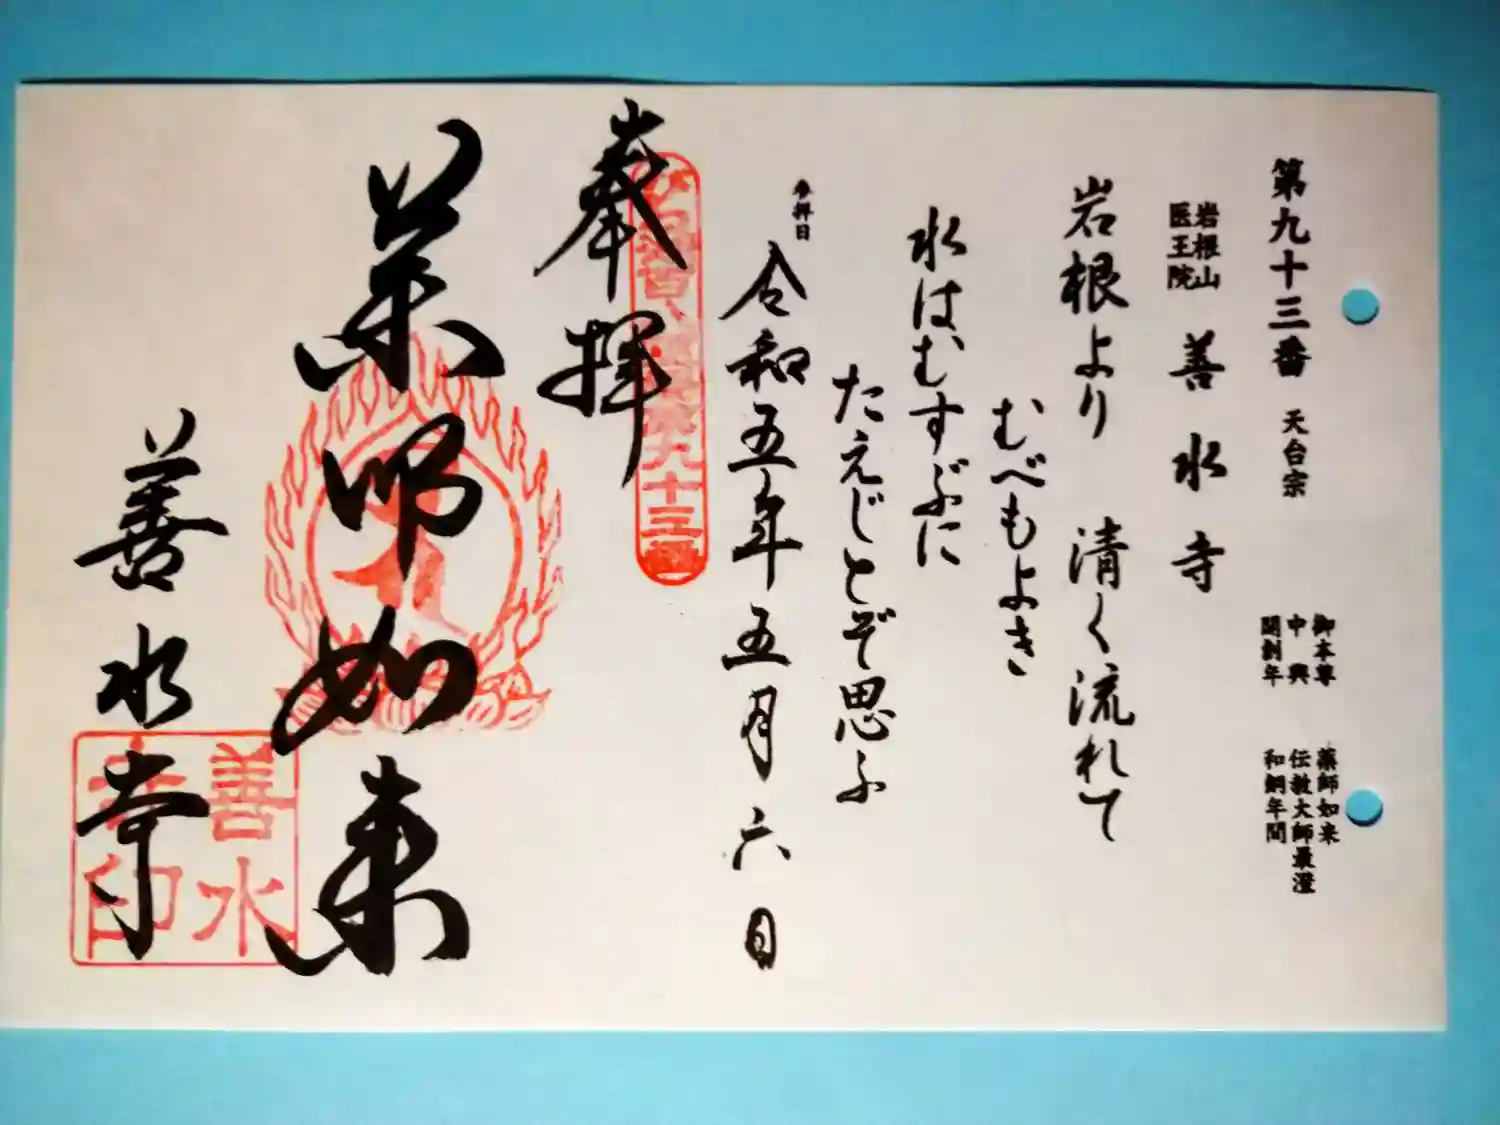 第九十三番 天台宗
御本尊 薬師如来
中興 伝教大師最澄
開創年 和銅年間
岩根山
医王院
善水寺
岩根より 清く流れて
むべもよき
水はむすぶに
たえじとぞ思ふ
参拝日 令和五年五月六日
奉拝
九十三番
薬師如来
善水寺
善水
寺印